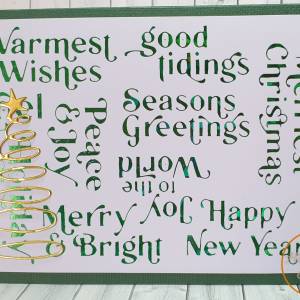 Warmest
Wishes
good
tidings
Christmas
Peace
& Joy
Seasons
Greetings
Joy
to the
World
Merry
& Bright
Happy
New Year